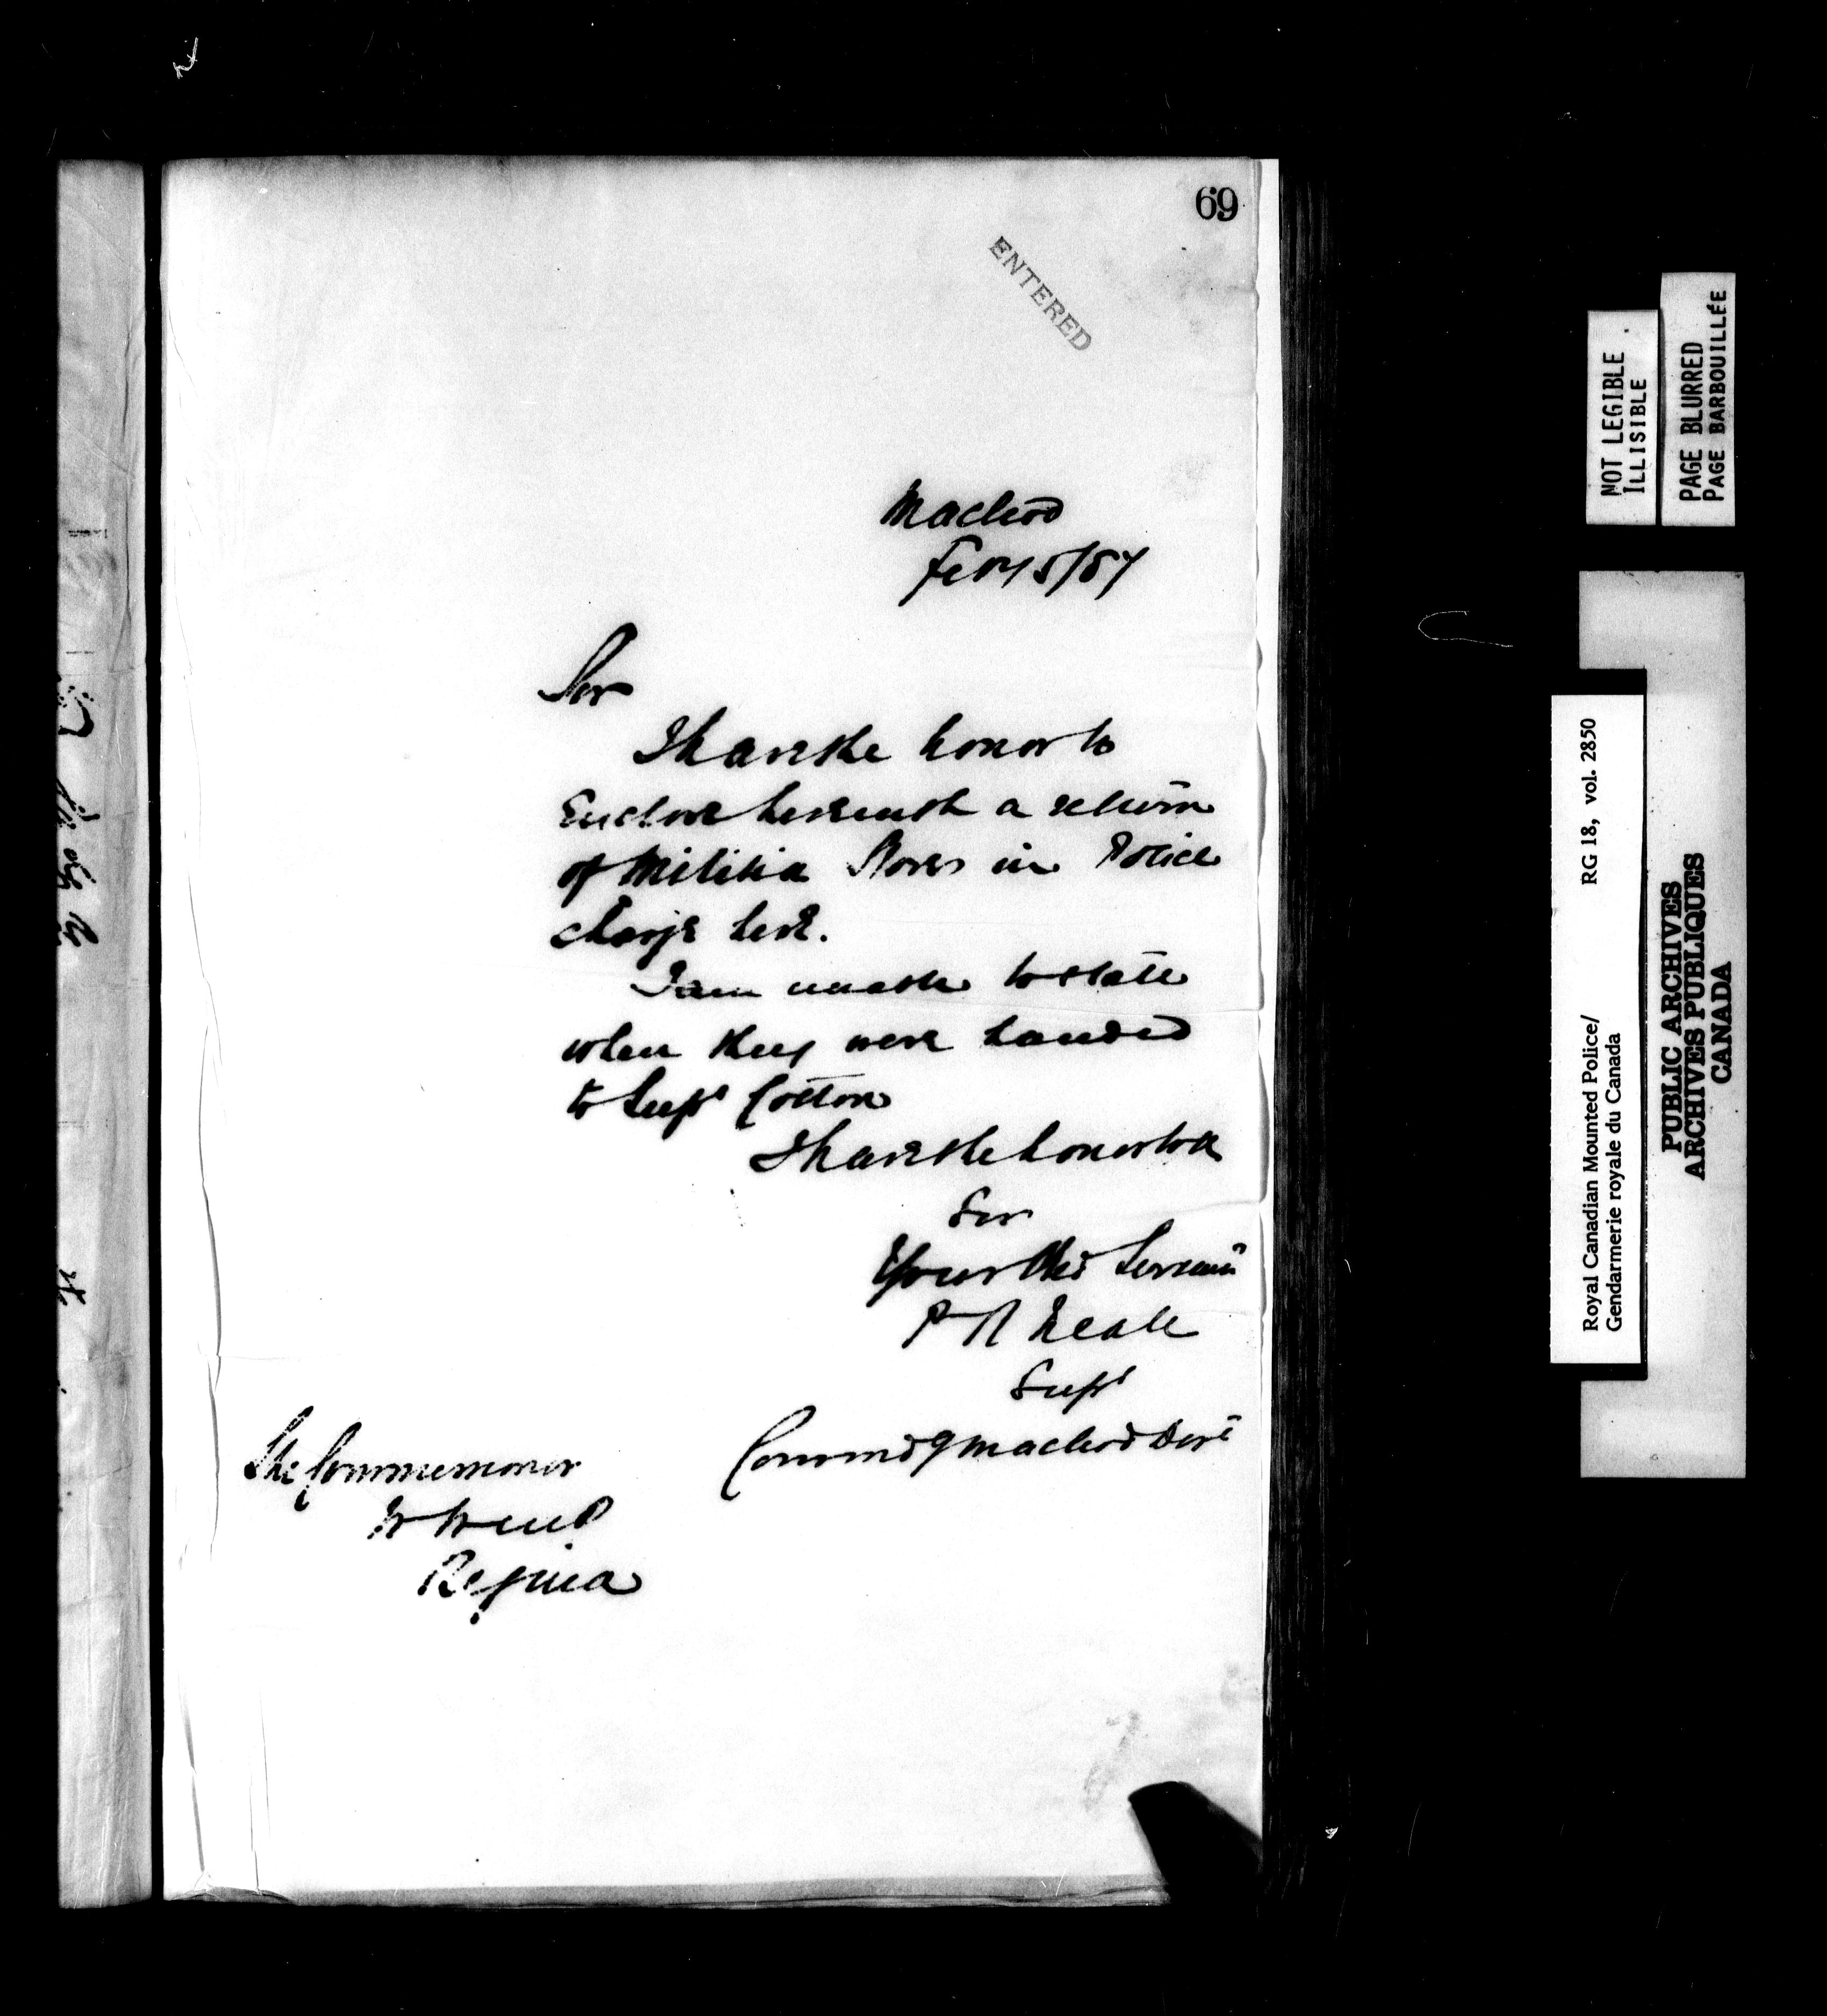 69
ENTERED
Macleod
Feby 5/87
Sir
I have the honor to
Enclose herewith a return
of Militia Stores in Police
charge here.
I am unable to state
when they were handed
to Supt Cotton
I have the honor to be
Sir
Your Obd Servant
P R Neale
Supt
Commdg Macleod Dist
The Commissioner
N W M P
Regina
NOT LEGIBLE
ILLISIBLE
PAGE BLURRED
PAGE BARBOUILLÉE
Royal Canadian Mounted Police/ RG 18, vol. 2850
Gendarmerie royale du Canada
PUBLIC ARCHIVES
ARCHIVES PUBLIQUES
CANADA